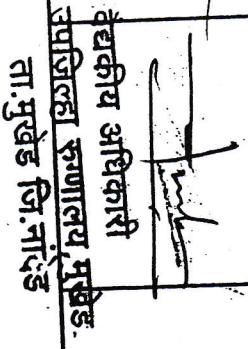 वैद्यकीय अधिकारी
उपजिल्हा रुग्णालय मुखेड.
ता.मुखेड जि.नांदेड